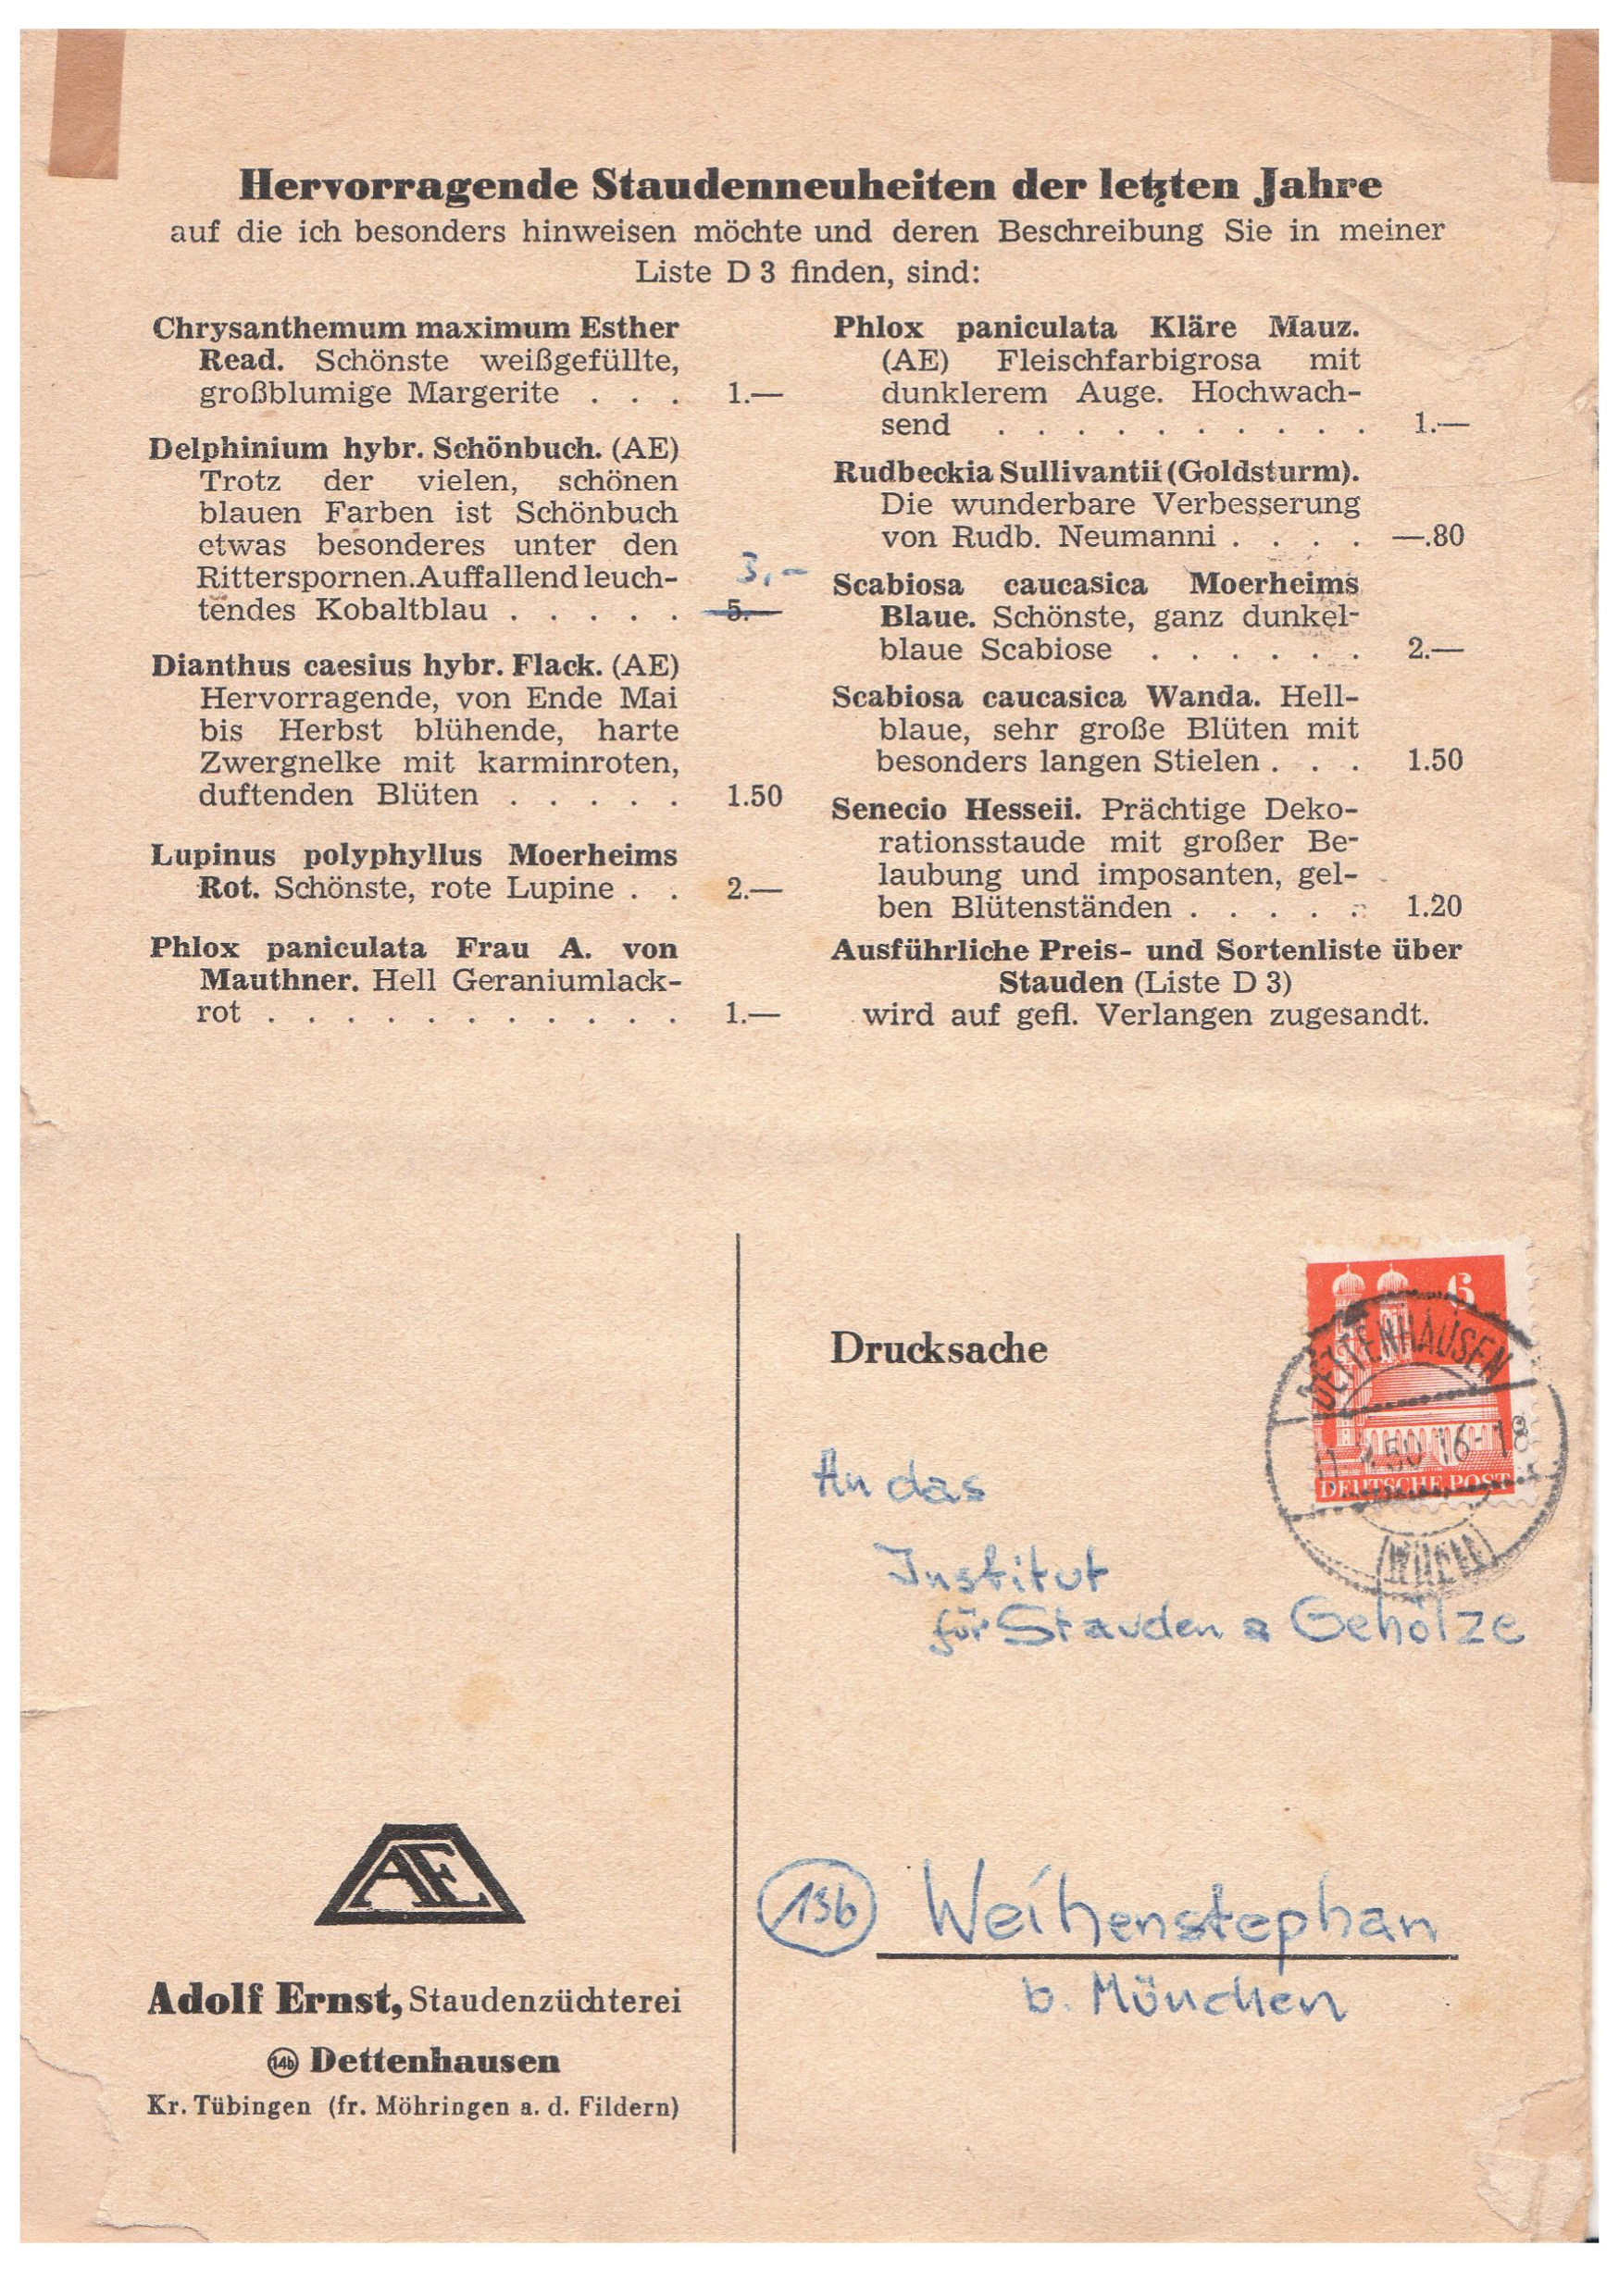 Hervorragende Staudenneuheiten der letzten Jahre
auf die ich besonders hinweisen möchte und deren Beschreibung Sie in meiner
Liste D 3 finden, sind:
Chrysanthemum maximum Esther
Read. Schönste weißgefüllte,
großblumige Margerite . . . 1.—
Delphinium hybr. Schönbuch. (AE)
Trotz der vielen, schönen
blauen Farben ist Schönbuch
etwas besonderes unter den
Ritterspornen. Auffallend leuch-
3,-
tendes Kobaltblau . . . . . 5.—
Dianthus caesius hybr. Flack. (AE)
Hervorragende, von Ende Mai
bis Herbst blühende, harte
Zwergnelke mit karminroten,
duftenden Blüten . . . . . 1.50
Lupinus polyphyllus Moerheims
Rot. Schönste, rote Lupine . . 2.—
Phlox paniculata Frau A. von
Mauthner. Hell Geraniumlack-
rot . . . . . . . . . . . 1.—
Phlox paniculata Kläre Mauz.
(AE) Fleischfarbigrosa mit
dunklerem Auge. Hochwach-
send . . . . . . . . . . 1.—
Rudbeckia Sullivantii (Goldsturm).
Die wunderbare Verbesserung
von Rudb. Neumanni . . . . —.80
Scabiosa caucasica Moerheims
Blaue. Schönste, ganz dunkel-
blaue Scabiose . . . . . . 2.—
Scabiosa caucasica Wanda. Hell-
blaue, sehr große Blüten mit
besonders langen Stielen . . . 1.50
Senecio Hesseii. Prächtige Deko-
rationsstaude mit großer Be-
laubung und imposanten, gel-
ben Blütenständen . . . . . 1.20
Ausführliche Preis- und Sortenliste über
Stauden (Liste D 3)
wird auf gefl. Verlangen zugesandt.
6
DETTENHAUSEN
50 16-18
DEUTSCHE POST
Drucksache
An das
Institut
für Stauden & Gehölze
13b Weihenstephan
b. München
AE
Adolf Ernst, Staudenzüchterei
14b Dettenhausen
Kr. Tübingen (fr. Möhringen a. d. Fildern)